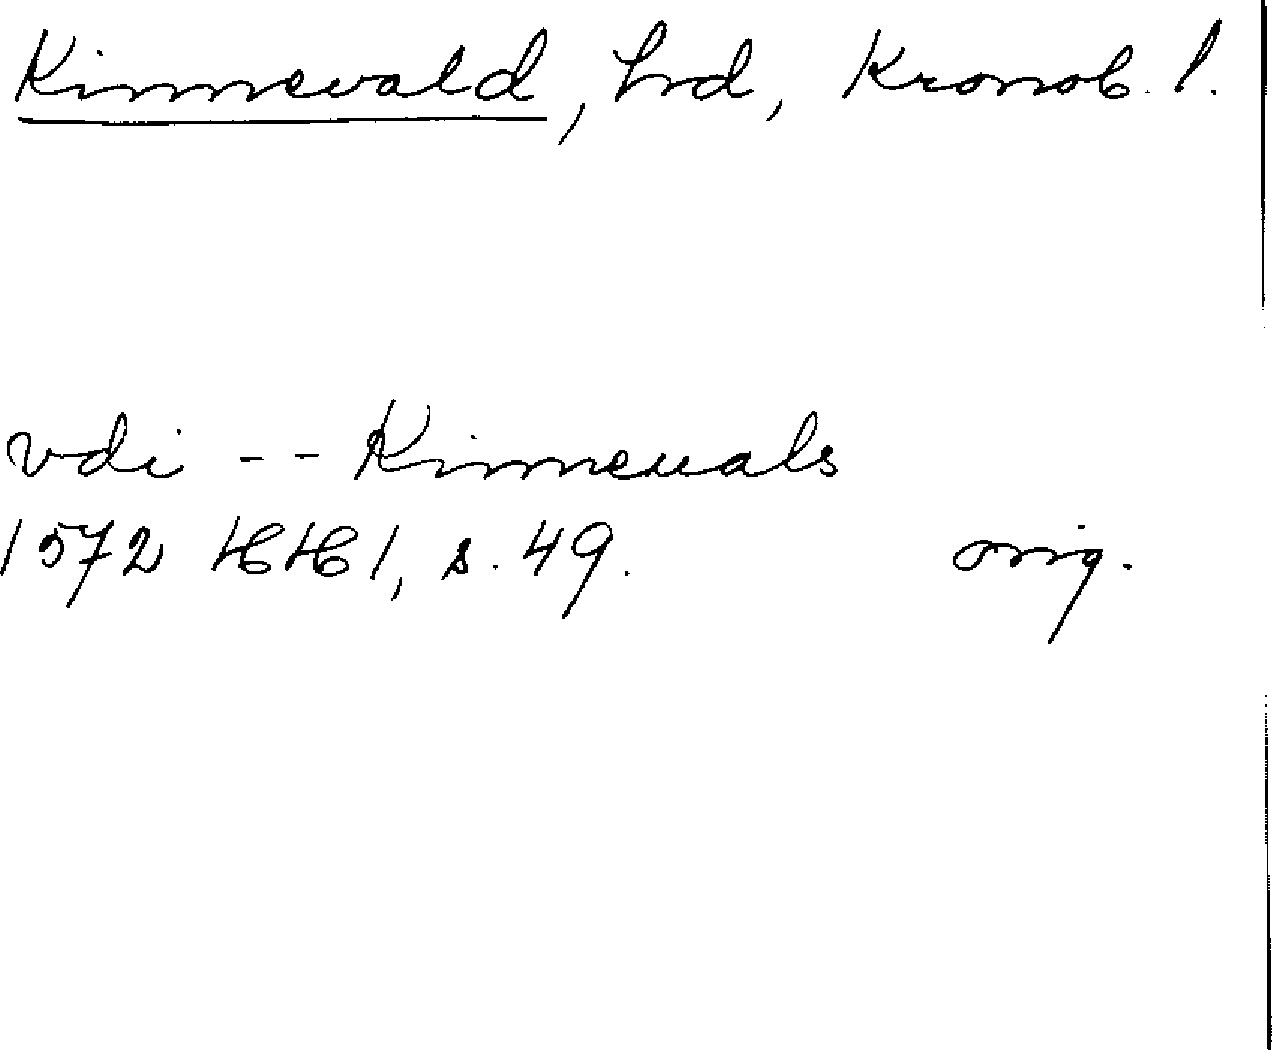 Kinnevald, hd, Kronob. l.
vdi -- Kinneuals
1572 HH 1, s. 49. orig.